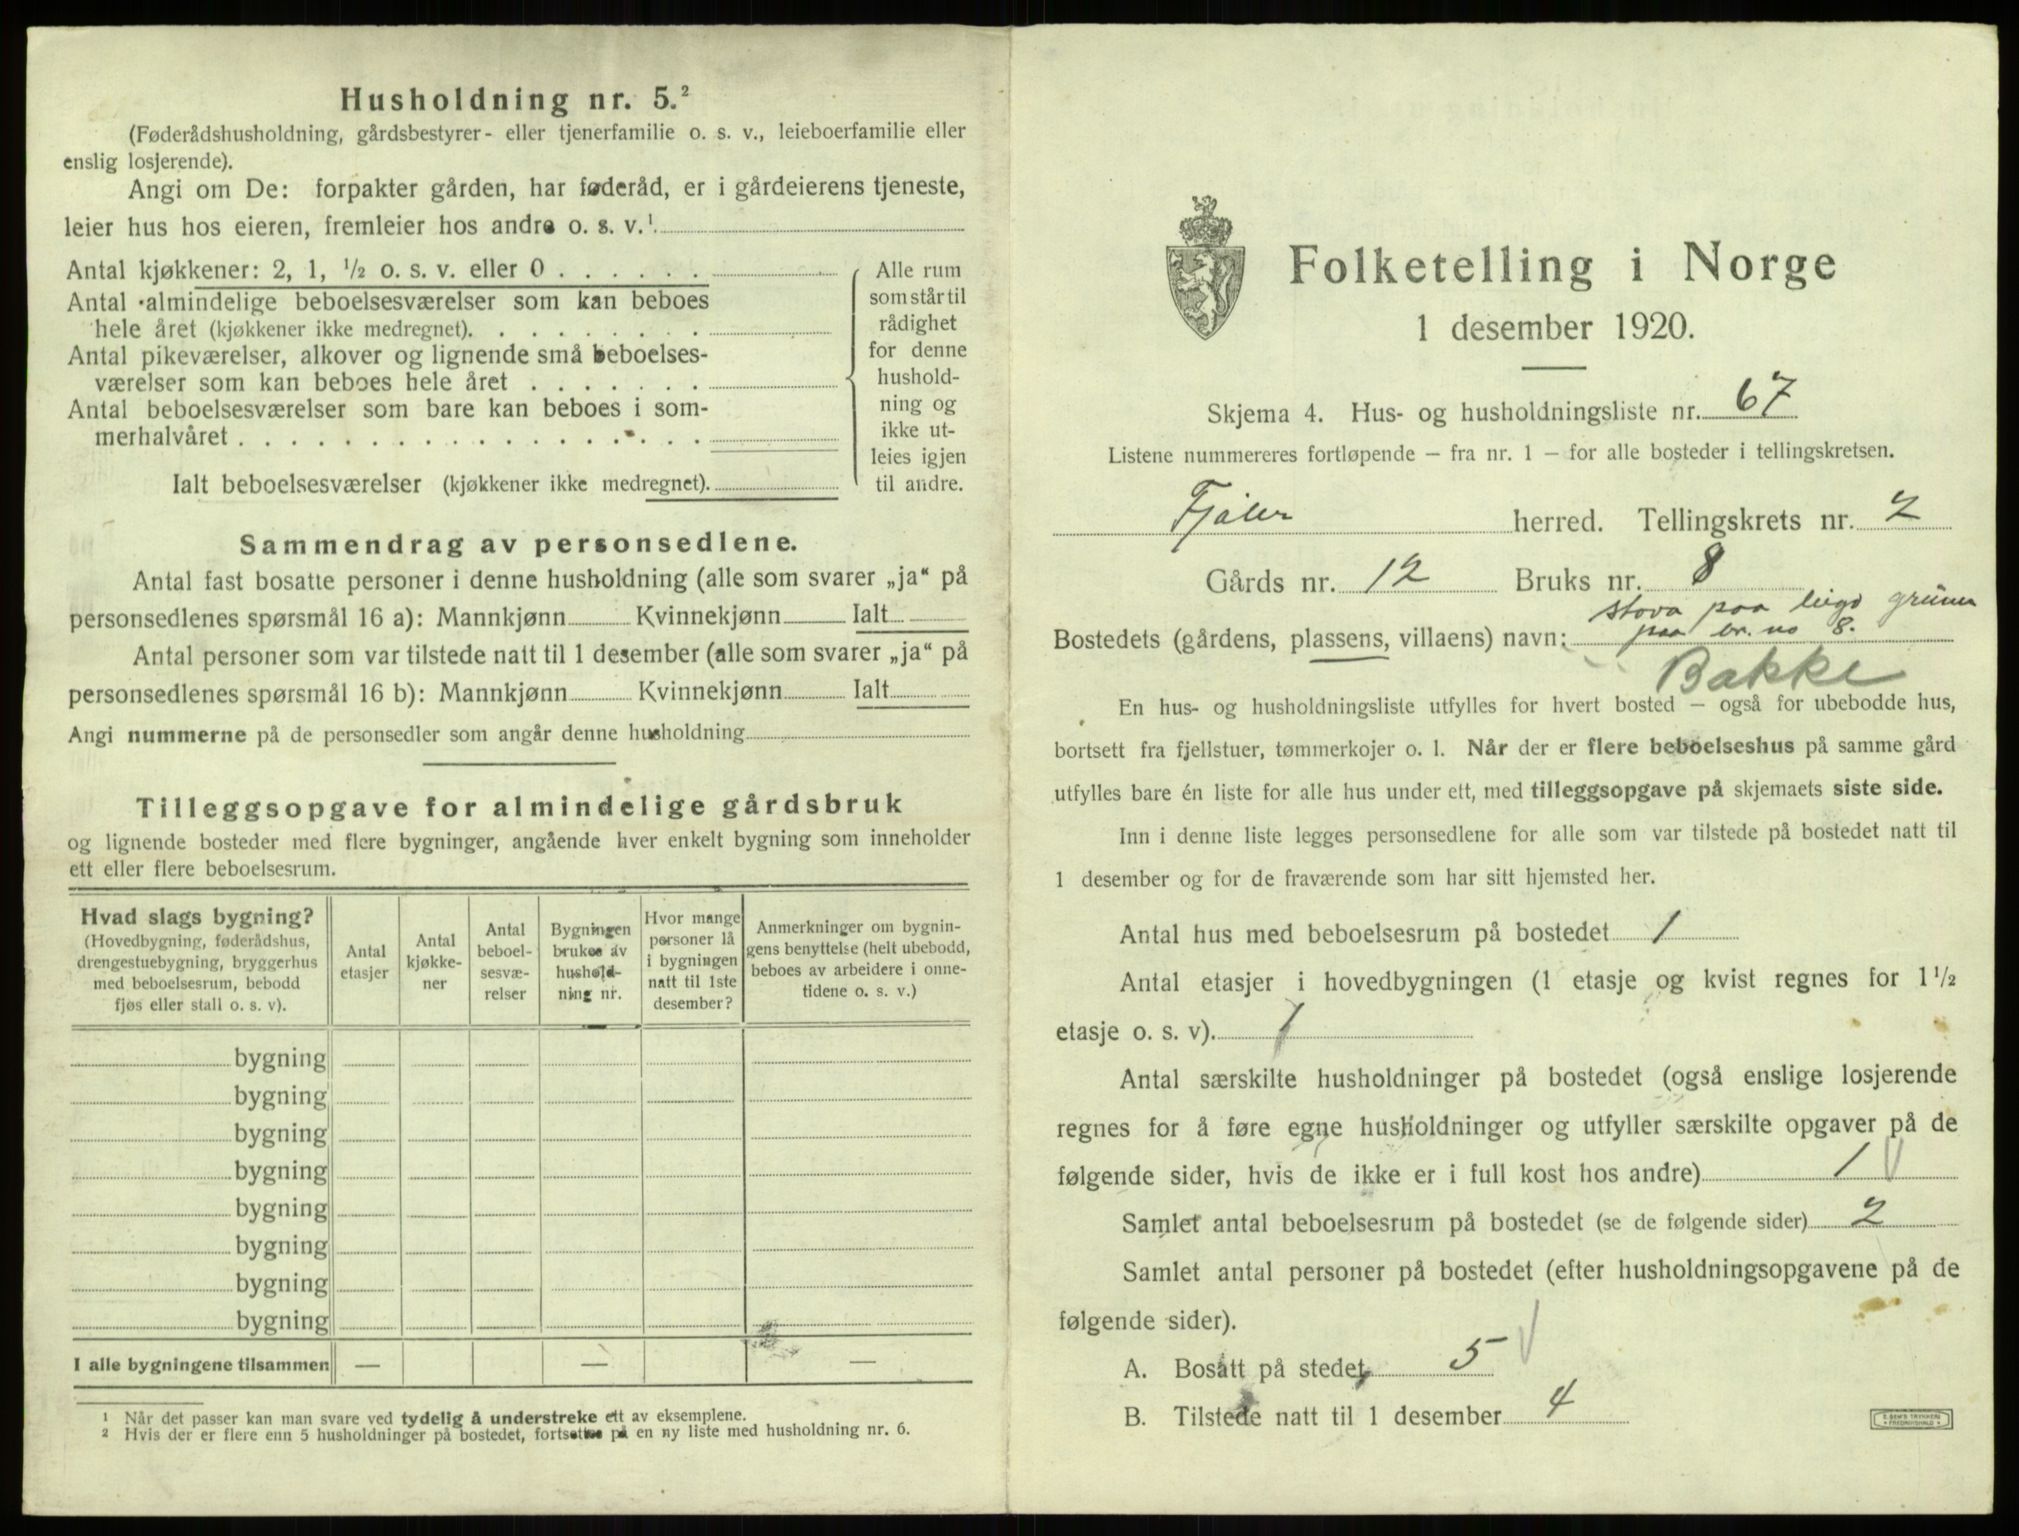 Husholdning nr. 5.²
(Føderådshusholdning, gårdsbestyrer- eller tjenerfamilie o. s. v., leieboerfamilie eller
enslig losjerende).
Angi om De: forpakter gården, har føderåd, er i gårdeierens tjeneste,
leier hus hos eieren, fremleier hos andre o. s. v.¹
Antal kjøkkener: 2, 1, ½ o. s. v. eller 0 . . . . . .
Antal almindelige beboelsesværelser som kan beboes
hele året (kjøkkener ikke medregnet). . . . . . . . .
Antal pikeværelser, alkover og lignende små beboelses-
værelser som kan beboes hele året . . . . . . .
Antal beboelsesværelser som bare kan beboes i som-
merhalvåret . . . . . . . . . . . . . . . . . .
Ialt beboelsesværelser (kjøkkener ikke medregnet).
Alle rum
som står til
rådighet
for denne
hushold-
ning og
ikke ut-
leies igjen
til andre.
Sammendrag av personsedlene.
Antal fast bosatte personer i denne husholdning (alle som svarer „ja“ på
personsedlenes spørsmål 16 a): Mannkjønn Kvinnekjønn Ialt
Antal personer som var tilstede natt til 1 desember (alle som svarer „ja“ på
personsedlenes spørsmål 16 b): Mannkjønn Kvinnekjønn Ialt
Angi nummerne på de personsedler som angår denne husholdning
Tilleggsopgave for almindelige gårdsbruk
og lignende bosteder med flere bygninger, angående hver enkelt bygning som inneholder
ett eller flere beboelsesrum.
Hvad slags bygning?
(Hovedbygning, føderådshus,
drengestuebygning, bryggerhus
med beboelsesrum, bebodd
fjøs eller stall o. s. v).
Antal
etasjer
Antal
kjøkke-
ner
Antal
beboel-
sesvæ-
relser
Bygningen
brukes av
hushold-
ning nr.
Hvor mange
personer lå
i bygningen
natt til 1ste
desember?
Anmerkninger om bygnin-
gens benyttelse (helt ubebodd,
beboes av arbeidere i onne-
tidene o. s. v.)
bygning
bygning
bygning
bygning
bygning
bygning
bygning
bygning
I alle bygningene tilsammen — — —
¹ Når det passer kan man svare ved tydelig å understreke ett av eksemplene.
² Hvis der er flere enn 5 husholdninger på bostedet, fortsettes på en ny liste med husholdning nr. 6.
Folketelling i Norge
1 desember 1920.
Skjema 4. Hus- og husholdningsliste nr. 67
Listene nummereres fortløpende — fra nr. 1 — for alle bosteder i tellingskretsen.
Fjaler herred. Tellingskrets nr. 2
Gårds nr. 12 Bruks nr. 8
stova paa leigd
Bostedets (gårdens, plassens, villaens) navn: paa br. no 8.
Bakke
En hus- og husholdningsliste utfylles for hvert bosted — også for ubebodde hus,
bortsett fra fjellstuer, tømmerkojer o. l. Når der er flere beboelseshus på samme gård
utfylles bare én liste for alle hus under ett, med tilleggsopgave på skjemaets siste side.
Inn i denne liste legges personsedlene for alle som var tilstede på bostedet natt til
1 desember og for de fraværende som har sitt hjemsted her.
Antal hus med beboelsesrum på bostedet 1
Antal etasjer i hovedbygningen (1 etasje og kvist regnes for 1½
etasje o. s. v). 1
Antal særskilte husholdninger på bostedet (også enslige losjerende
regnes for å føre egne husholdninger og utfyller særskilte opgaver på de
følgende sider, hvis de ikke er i full kost hos andre) 1
Samlet antal beboelsesrum på bostedet (se de følgende sider) 2
Samlet antal personer på bostedet (efter husholdningsopgavene på de
følgende sider).
A. Bosatt på stedet 5
B. Tilstede natt til 1 desember 4